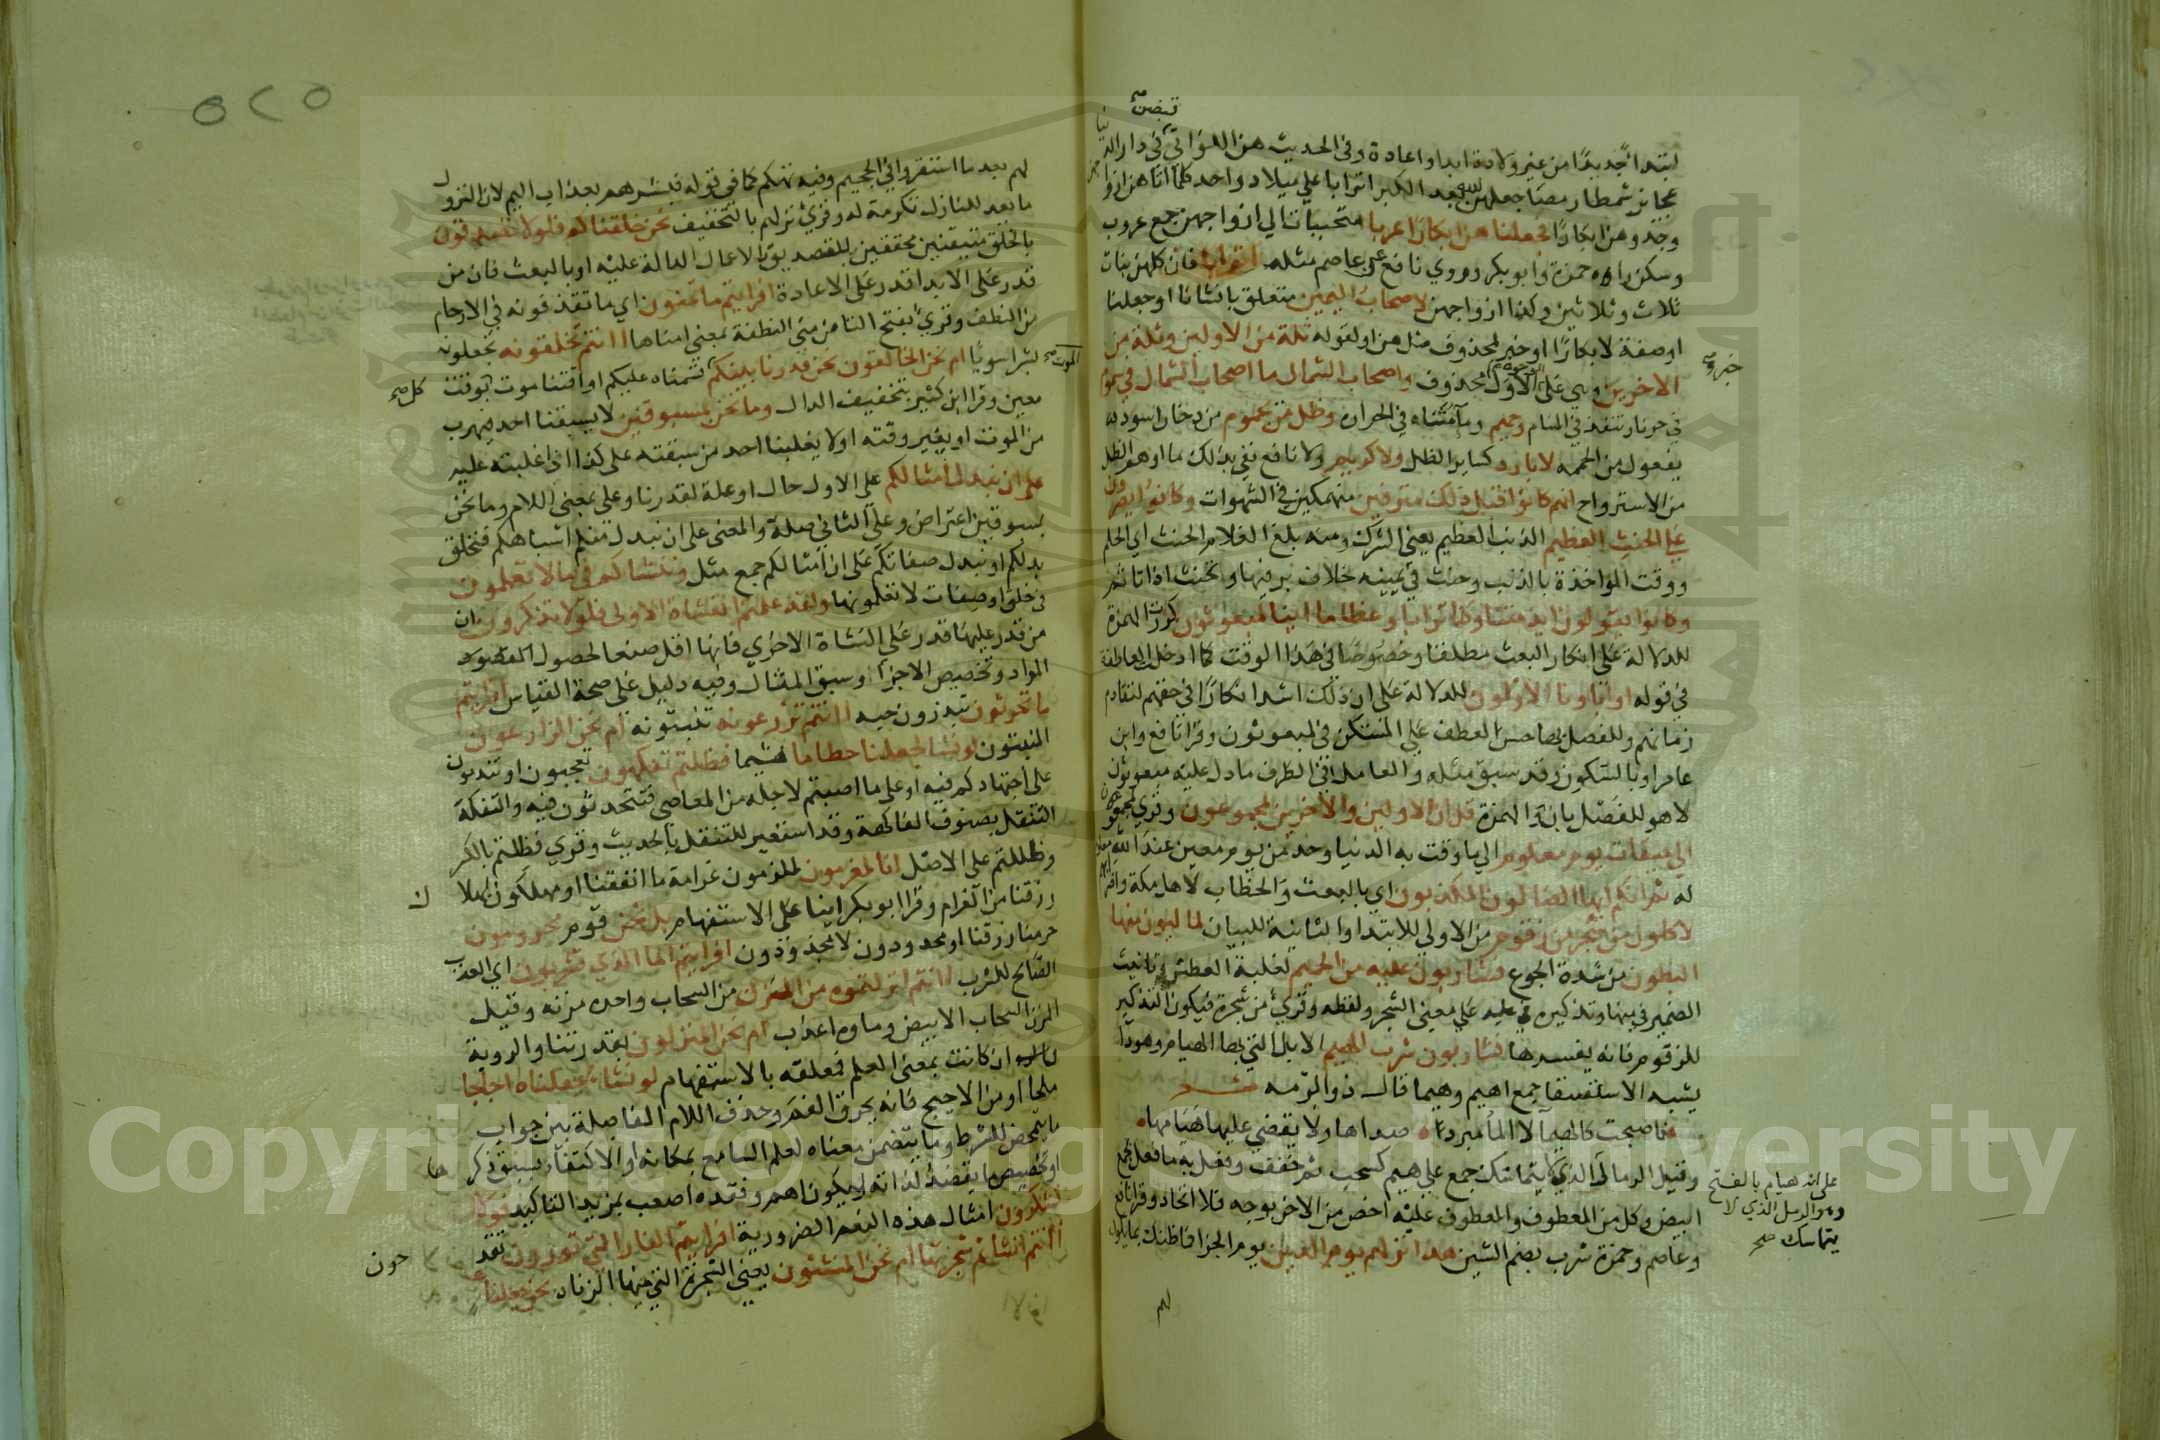 قبضن صح
ابتداءً جديدًا من غير ولادة ابداء او اعادة وفي الحديث هن اللواتي في دار الدنيا
عجائز شمطا رمصا جعلهن الله بعد الكبر اترابا على ميلاد واحد كلما اتاهن ازواجهن
وجدوهن ابكارًا فجعلناهن ابكارًا عربا متحببات الي ازواجهن جمع عروب
وسكن راه حمزة وابو بكر وروي نافع عن عاصم مثله اترابا فان كلهن بنات
ثلاث وثلاثين وكذا ازواجهن لاصحاب اليمين متعلق بانشانا او جعلنا
او صفة لابكارًا او خبر لمحذوف مثل هن او لقوله ثلة من الاولين وثلة من
الاخرين وهي على الاول محذوف واصحاب الشمال ما اصحاب الشمال في سموم
في حر نار تنفذ في المسام وحميم وماء متناه في الحرارة وظل من يحموم من دخان اسود
يفعول من الحممه لا بارد كساير الظل ولا كريم ولا نافع نفي بذلك ما اوهم الظل
من الاسترواح انهم كانوا قبل ذلك مترفين منهمكين في الشهوات وكانوا يصرون
على الحنث العظيم الذنب العظيم يعني الشرك ومنه بلغ الغلام الحنث اي الحلم
ووقت المواخذة بالذنب وحنث في يمينه خلاف بر فيها وتحنث اذا تاثم
وكانوا يقولون ايذا متنا وكنا ترابا وعظاما اينا لمبعوثون كررت الهمزة
للدلالة على انكار البعث مطلقا وخصوصا في هذا الوقت كما ادخلت العاطفة
في قوله او اباونا الاولون للدلالة على ان ذلك اشد انكارًا في حقهم لتقادم
زمانهم وللفصل بها حسن العطف على المستكن في لمبعوثون وقرا نافع وابن
عامر او بالسكون وقد سبق مثله والعامل في الظرف ما دل عليه مبعوثون
لا هو للفصل بان والهمزة قل ان الاولين والاخرين لمجموعون وقري لمجمعون
الي ميقات يوم معلوم الي ما وقت به الدنيا وحد من يوم معين عند الله معلوم
له ثم انكم ايها الضالون المكذبون اي بالبعث والخطاب لاهل مكة واضرابهم
لاكلون من شجر من زقوم من الاولي للابتدا والثانية للبيان فمالئون منها
البطون من شدة الجوع فشاربون عليه من الحميم لغلبة العطش وتانيث
الضمير في منها وتذكيره في عليه على معنى الشجر ولفظه وقري من شجرة فيكون التذكير
للزقوم فانه يفسدها فشاربون شرب الهيم الابل التي بها الهيام وهو دا
يشبه الاستسقا جمع اهيم وهيما قال ذو الرمه شعر
فاصبحت كالهيما لا الماء مبرد صداها ولا يقضي عليها هيامها
وقيل الرمال الذي لا يتماسك جمع على هيم كسحب ثم خفف وفعل به ما فعل بجمع
ابيض وكل من المعطوف والمعطوف عليه اخص من الاخر بوجه فلا اتحاد وقرا نافع
وعاصم وحمزة شرب بضم الشين هذا نزلهم يوم الدين يوم الجزا فاظنك بما يكون
لهم
خبر وصح
على انه هيام بالفتح
وهو الرمل الذي لا
يتماسك صح
٥٢٥
لهم بعد ما استقروا في الجحيم وفيه تهكم كما في قوله فبشرهم بعذاب اليم لان النزل
ما يعد للنازل تكرمة له وقري نزلهم بالتخفيف نحن خلقناكم فلولا تصدقون
بالخلق متيقنين محققين للتصديق بالاعمال الدالة عليه او بالبعث فان من
قدر على الابدا قدر على الاعادة افرايتم ما تمنون اي ما تقذفونه في الارحام
من النطف وقري بفتح التا من مني النطفة بمعني امناها اانتم تخلقونه تجعلونه
بشرا سويا ام نحن الخالقون نحن قدرنا بينكم الموت قسمناه عليكم او اقتنا موت كل بوقت
معين وقرا ابن كثير بتخفيف الدال وما نحن بمسبوقين لا يسبقنا احد فيهرب
من الموت او يغير وقته او لا يغلبنا احد من سبقته على كذا اذا غلبته عليه
على ان نبدل امثالكم على الاول حال او علة لقدرنا وعلى بمعنى اللام وما نحن
بمسبوقين اعتراض وعلى الثاني صلة والمعنى على ان نبدل منكم اشباهكم فنخلق
بدلكم او نبدل صفاتكم على ان امثالكم جمع مثل وننشاكم في ما لا تعلمون
في خلق او صفات لا تعلمونها ولقد علمتم النشاة الاولى فلولا تذكرون ان
من قدر عليها قدر على النشاة الاخري فانها اقل صنعا لحصول
المواد وتخصيص الاجزا وسبق المثال وفيه دليل على صحة القياس افرايتم
ما تحرثون تبذرون حبه اانتم تزرعونه تنبتونه ام نحن الزارعون
المنبتون لو نشا لجعلناه حطاما هشيما فظلتم تفكهون تعجبون او تندمون
على اجتهادكم فيه او على ما اصبتم لاجله من المعاصي فتتحدثون فيه والتفكه
التنقل بصنوف الفاكهة وقد استعير للتنقل بالحديث وقري فظلتم بالكسر
وظللتم على الاصل انا لمغرمون لملزمون غرامة ما انفقنا او مهلكون لهلاك
رزقنا من الغرام وقرا ابو بكر اينا على الاستفهام بل نحن قوم محرومون
حرمنا رزقنا او محدودون لا مجذوذون افرايتم الما الذي تشربون اي العذب
الصالح للشرب اانتم انزلتموه من المزن من السحاب واحده مزنه وقيل
المزن السحاب الابيض وماوه اعذب ام نحن المنزلون بقدرتنا والروية
ان كانت بمعنى العلم فعلقه بالاستفهام لو نشا جعلناه اجاجا
ملحا او من الاجيج فانه يحرق الفم وحذف اللام الفاصلة بين جواب
ما يتمحض للشرط وما يتضمن معناه لعلم السامع بمكانه او الاكتفا بسبق ذكرها
او تخصيص ما يقصد لذاته ويكون اهم وفقده اصعب بمزيد التاكيد فلولا
تشكرون امثال هذه النعم الضرورية افرايتم النار التي تورون تقد
اانتم انشاتم شجرتها ام نحن المنشئون يعني الشجرة التي منها الزناد نحن جعلناها
حون
الموت صح
كل صح